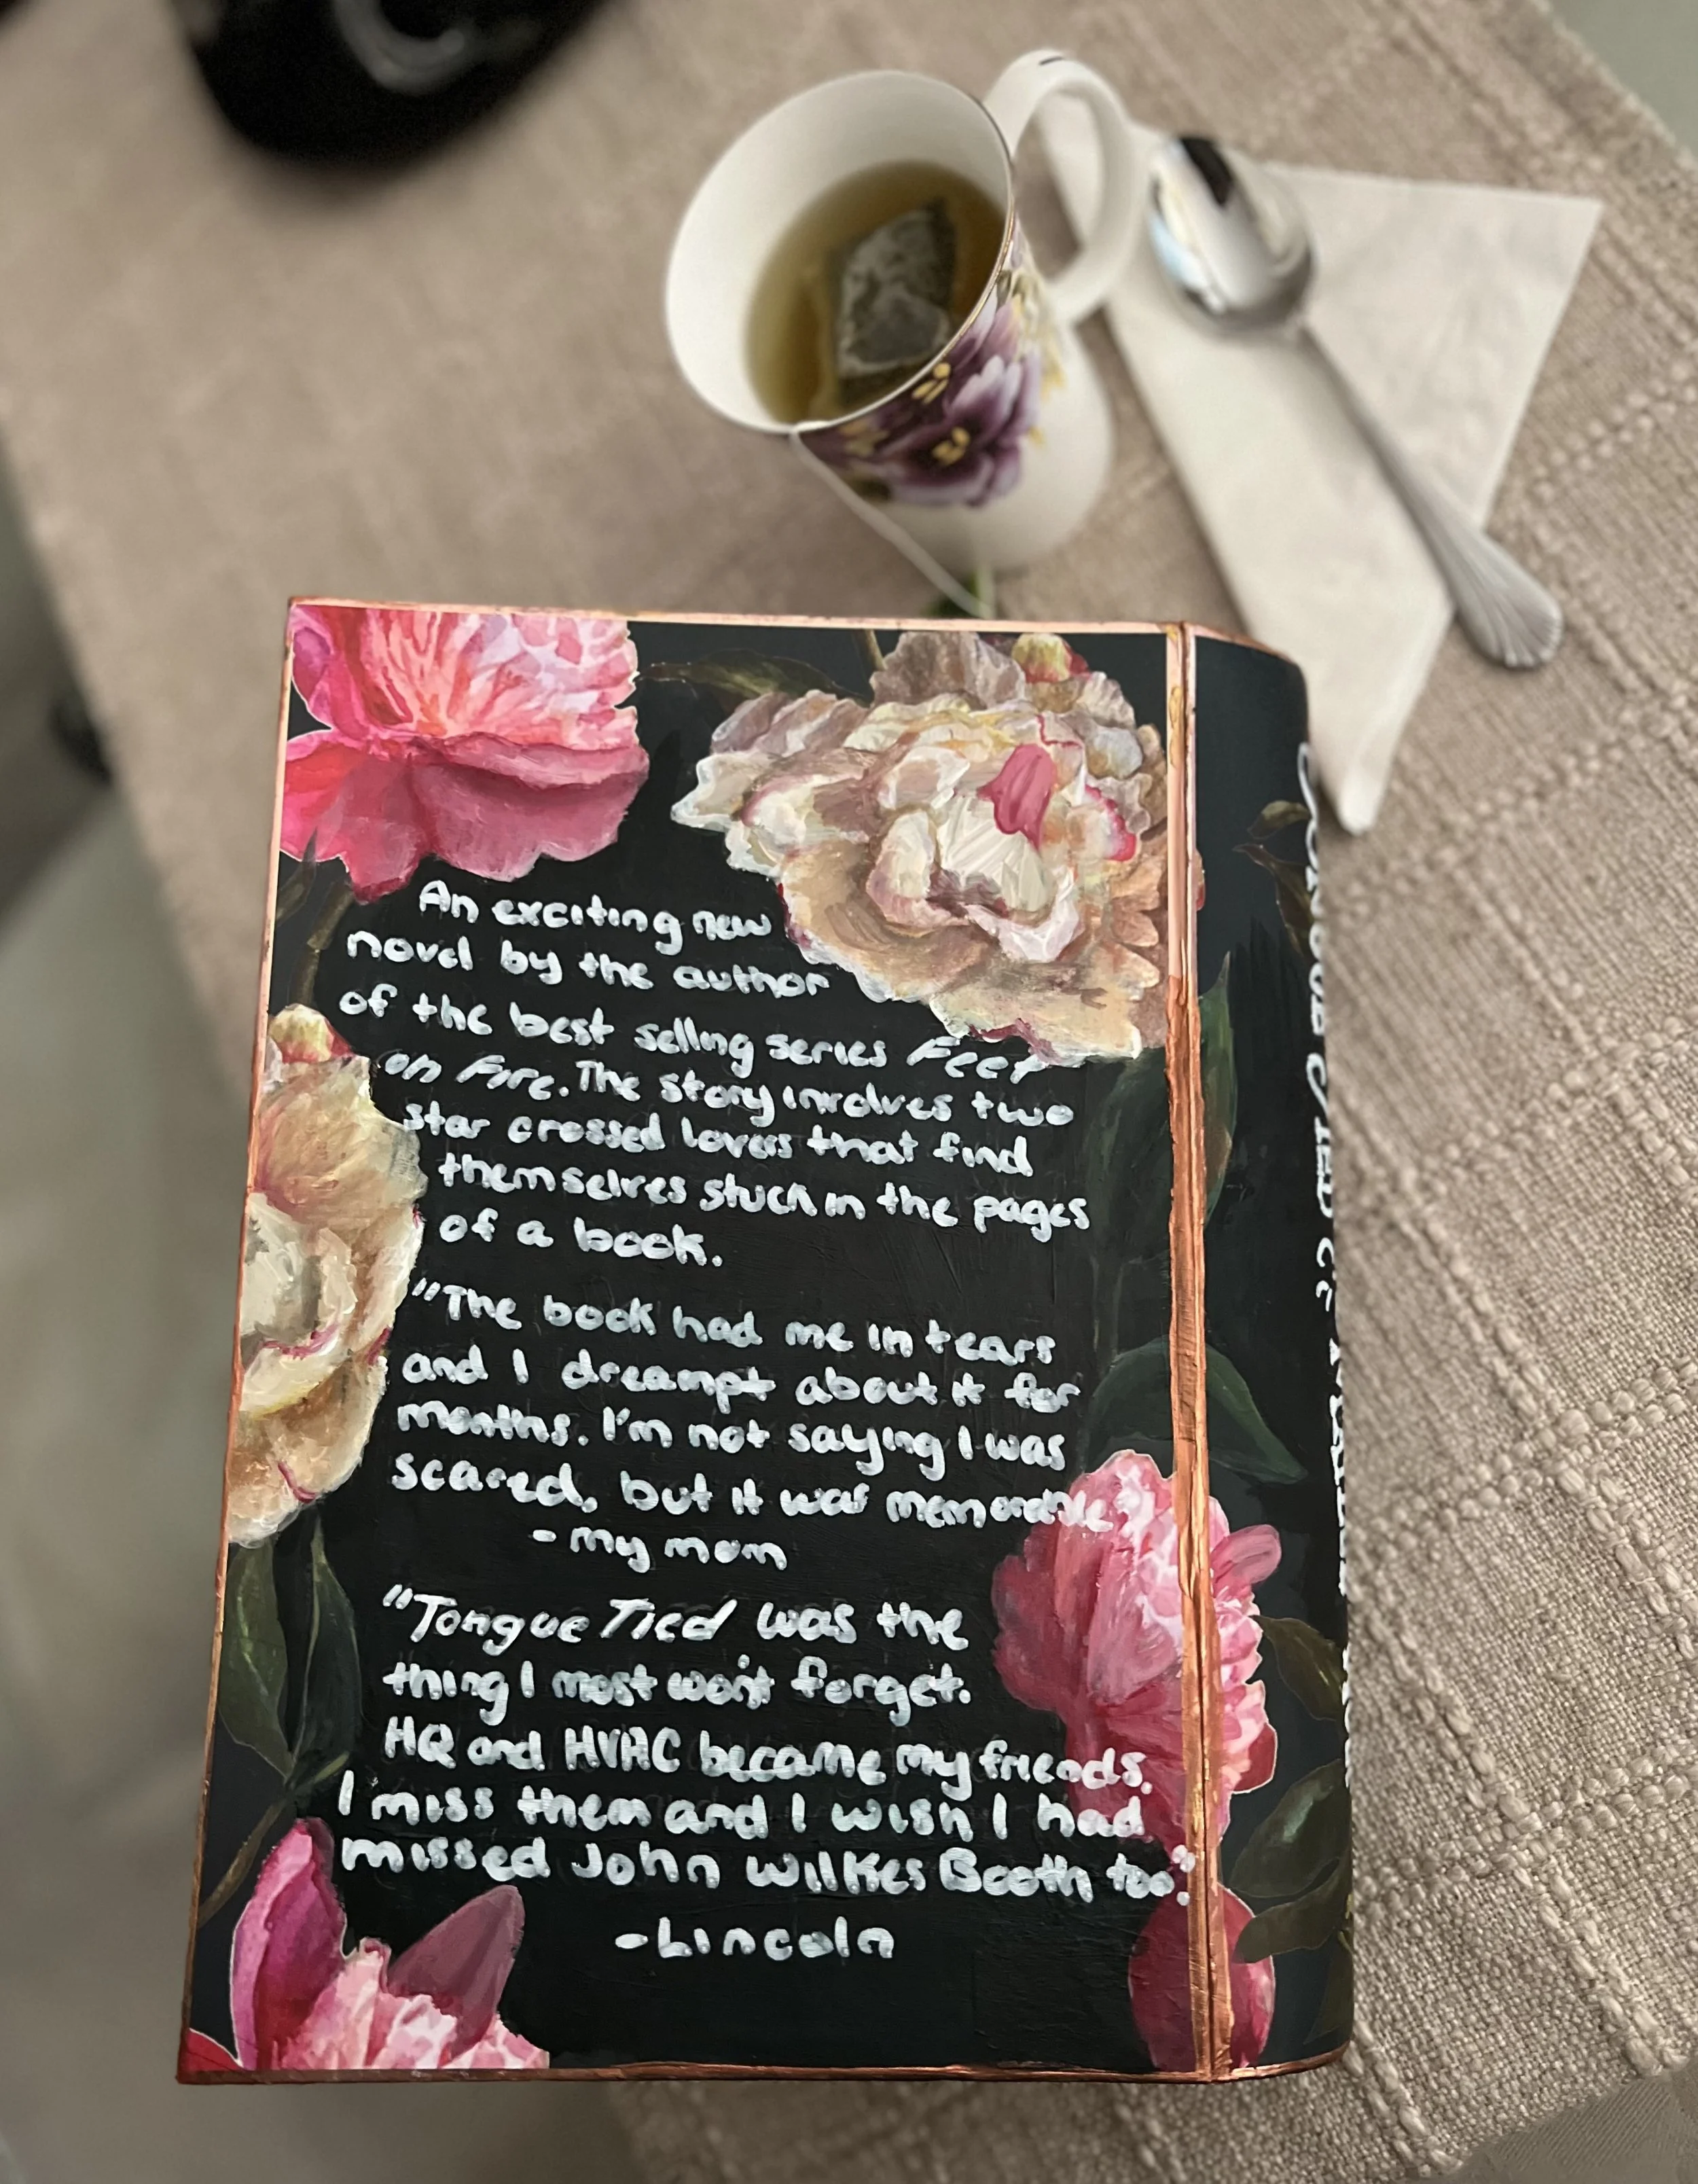 An exciting new
novel by the author
of the best selling series Feet
on Fire. The story involves two
star crossed lovers that find
themselves stuck in the pages
of a book.
"The book had me in tears
and I dreampt about it for
months. I'm not saying I was
scared, but it was memorable
- my mom
"Tongue Tied was the
thing I most won't forget.
HQ and HVAC became my friends.
I miss them and I wish I had
missed John Wilkes Booth too."
-Lincoln